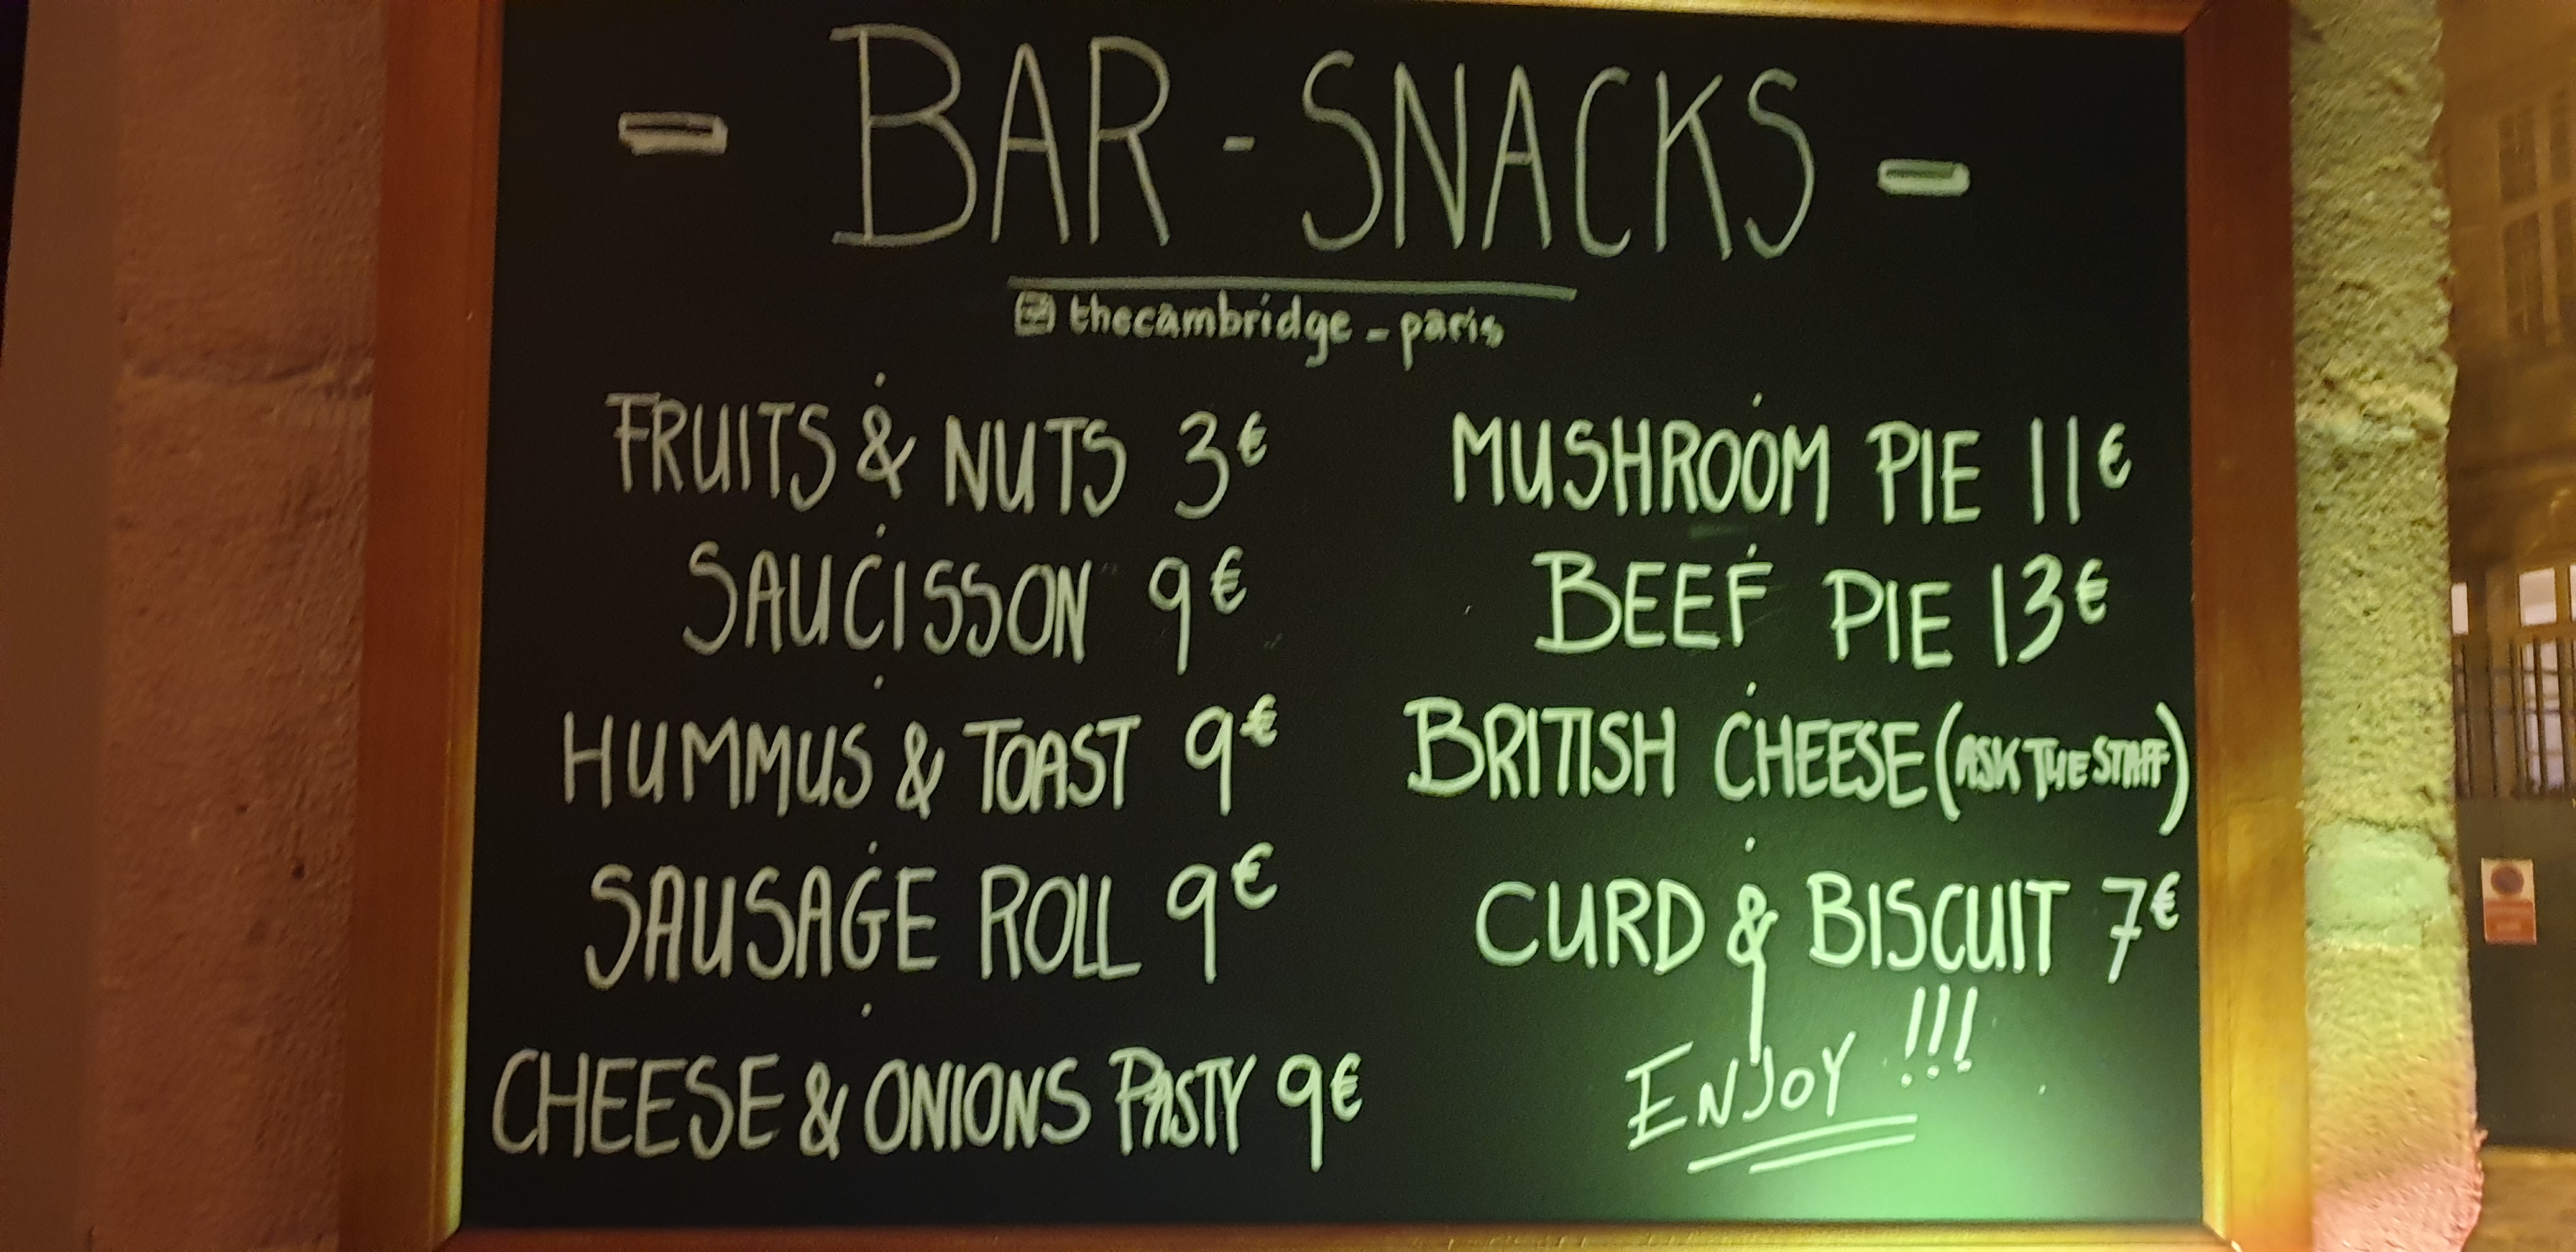 - BAR - SNACKS -
thecambridge_paris
FRUITS & NUTS 3€
SAUCISSON 9€
HUMMUS & TOAST 9€
SAUSAGE ROLL 9€
CHEESE & ONIONS PASTY 9€
MUSHROOM PIE 11€
BEEF PIE 13€
BRITISH CHEESE (ASK THE STAFF)
CURD & BISCUIT 7€
ENJOY !!!